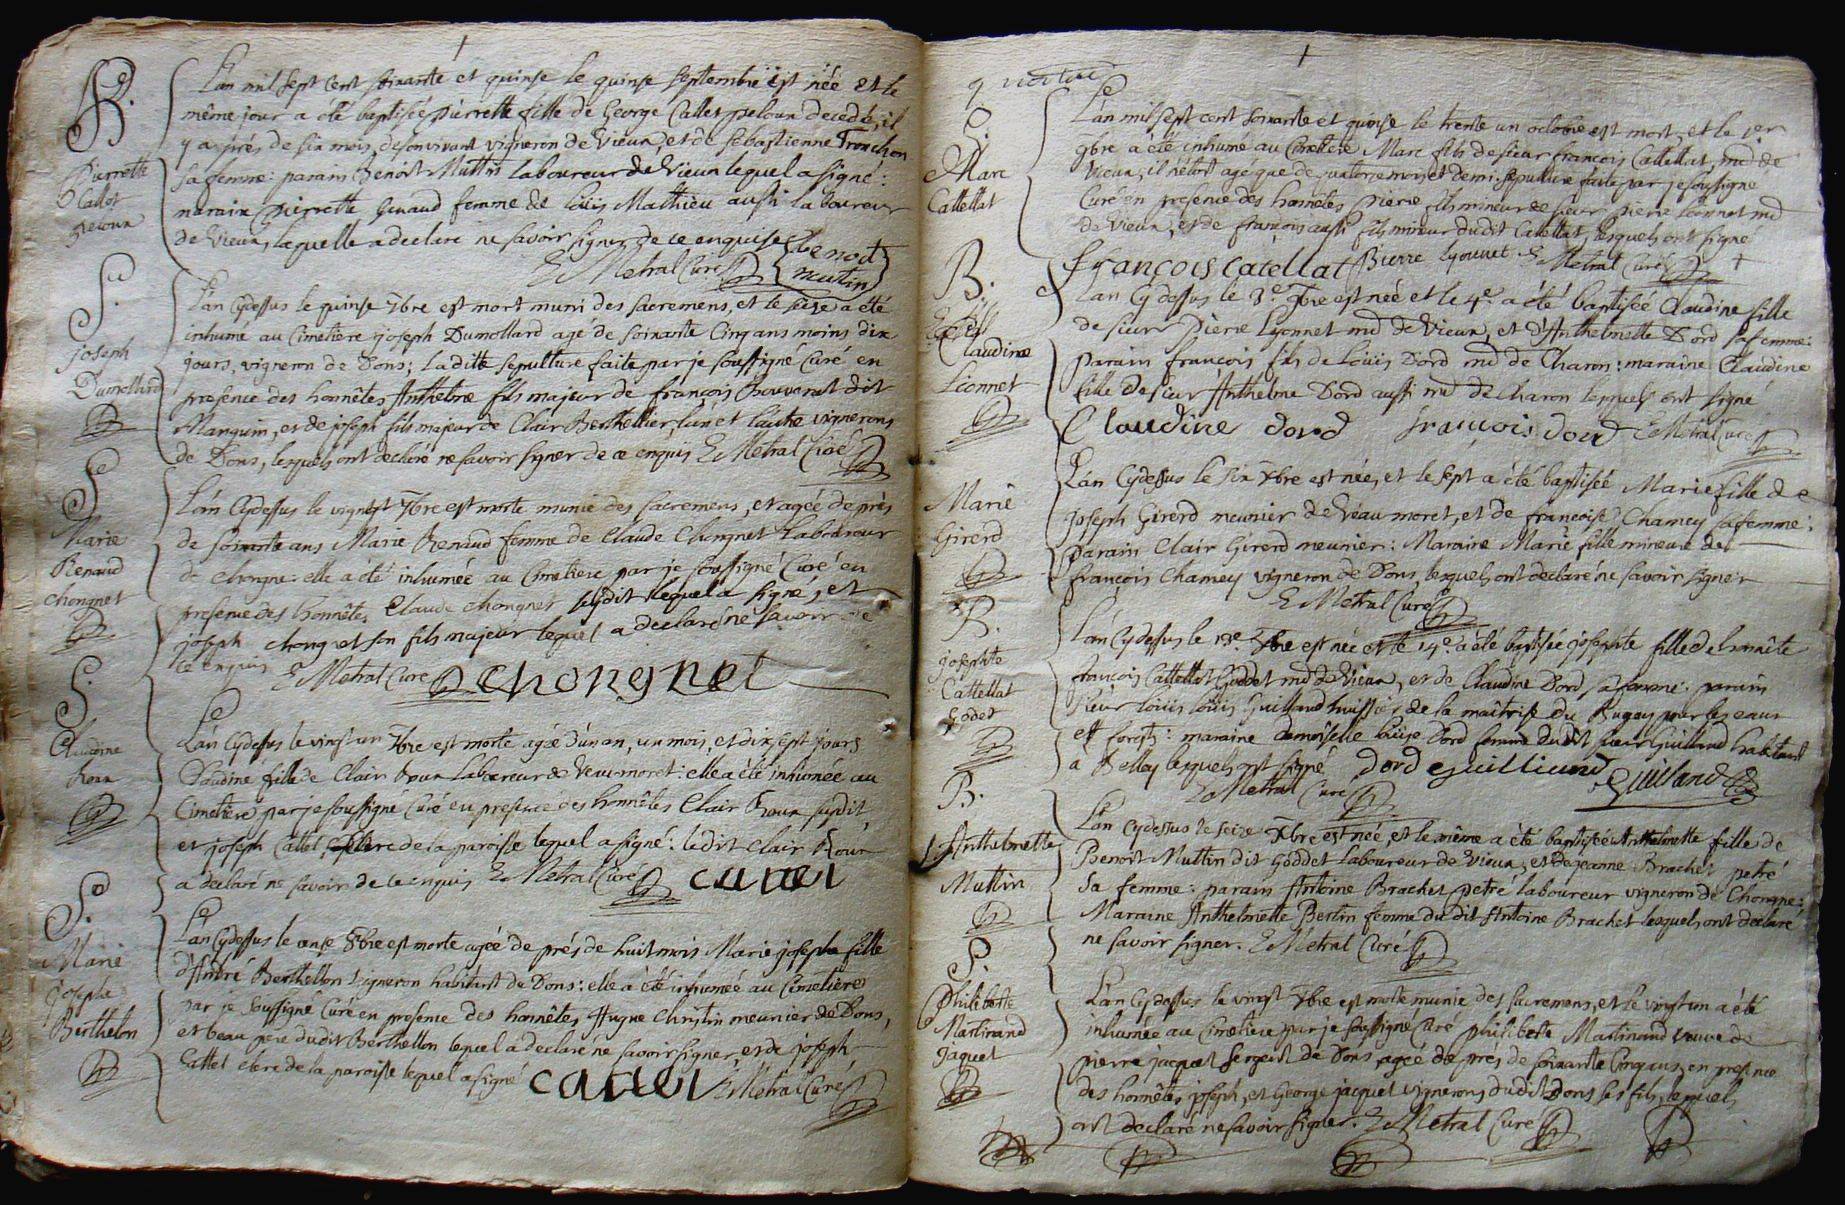 B.
Pierrette
Callet
peloux
L'an mil sept cent soixante et quinse le quinse septembre est née et le
même jour a été baptisée pierrette fille de George Callet peloux decedé, il
y a près de six mois, de son vivant vigneron de Vieux, et de sebastienne Tronchon
sa femme: parain Benoit Muttin laboureur de Vieux lequel a signé:
maraine pierrette Genaud femme de Loüis Mathieu aussi laboureur
de Vieux, laquelle a declaré ne savoir signer de ce enquise benoit
E Metral Curé mutin
S.
joseph
Dumollard
L'an cydessus le quinse 7bre est mort muni des sacremens, et le seize a été
inhumé au Cimetiere joseph Dumollard agé de soixante cinq ans moins dix
jours, vigneron de Dons; ladite sepulture faite par je soussigné Curé en
presence des honnêtes Anthelme fils majeur de françois Chavarot dit
Manguin, et de joseph fils majeur de Clair Berthellier, l'un et l'autre vignerons
de Dons, lesquels ont declaré ne savoir signer de ce enquis E Metral Curé
S.
Marie
Renaud
chongnet
L'an Cydessus le vingt 7bre est morte munie des sacremens, et agée de près
de soixante ans Marie Renaud femme de Claude Chongnet Laboureur
de chongne: elle a été inhumée au Cimetiere par je soussigné Curé en
presence des honnêtes Claude chongnet susdit lequel a signé, et
joseph chongnet son fils majeur lequel a declaré ne savoir de
ce enquis E Metral Curé chongnet
S.
Claudine
Roux
L'an Cydessus le vingt un 7bre est morte agée d'un an, un mois, et dix sept jours
Claudine fille de Clair Roux Laboureur de Veaumoret: elle a été inhumée au
Cimetiere par je soussigné Curé en presence des honnêtes Clair Roux susdit,
et joseph Cattel clerc de la paroisse lequel a signé: ledit Clair Roux
a declaré ne savoir de ce enquis E Metral Curé
S.
Marie
josephe
Berthelon
L'an Cydessus le onse 8bre est morte agée de près de huit mois Marie josephe fille
d'André Berthellon Vigneron habitant de Dons: elle a été inhumée au Cimetiere
par je soussigné Curé en presence des honnêtes Hugue Christin meunier de Dons,
et beau pere dudit Berthellon lequel a declaré ne savoir signer, et de joseph
Cattel clerc de la paroisse lequel a signé E Metral Curé
S.
Marc
Catellat
L'an mil sept cent soixante et quinse le trente un octobre est mort, et le 1er
9bre a été inhumé au Cimetiere Marc fils de sieur françois Catellat, md de
Vieux; il n'étoit agé que de quatorze mois et demi: sepulture faite par je soussigné
Curé en presence des honnêtes pierre fils mineur de sieur pierre Lyonnet md
de Vieux, et de françois aussi fils mineur dudit Catellat, lesquels ont signé
françois catellat Pierre Lyonnet E Metral Curé
B.
Claudine
Lionnet
L'an Cy dessus le 3e 9bre est née et le 4e a été baptisée Claudine fille
de sieur pierre Lyonnet md de Vieux, et d'Anthelmette Dord sa femme:
parain françois fils de Loüis Dord md de Charon: maraine Claudine
fille de sieur Anthelme Dord aussi md de Charon lesquels ont signé
Claudine dord françois dord E Metral Curé
Marie
Girerd
L'an Cydessus le six Xbre est née, et le sept a été baptisée Marie fille de
joseph Girerd meunier de Veaumoret, et de françoise Chamey sa femme:
parain Clair Girerd meunier: Maraine Marie fille mineure de
françois Chamey vigneron de Dons, lesquels ont declaré ne savoir signer
E Metral Curé
B.
josephte
Cattellat
Godet
L'an Cydessus le 13e Xbre est née et le 14e a été baptisée josephte fille de l'honnête
françois Cattellat Goddet md de Vieux, et de Claudine Dord sa femme: parain
sieur Loüis Loüis Guilland huissier de la maîtrise du Bugey pour les eaux
et forets: maraine demoiselle Loüise Dord femme dudit sieur Guilland habitant
a Belley lesquels ont signé dord guilliand Guilland
E Metral Curé
B.
Anthelmette
Muttin
L'an Cydessus le seize Xbre est née, et le même a été baptisée Anthelmette fille de
Benoit Muttin dit Goddet Laboureur de Vieux, et de jeanne Brachet petré
sa femme: parain Antoine Brachet petré laboureur vigneron de Chongne:
Maraine Anthelmette Bertin femme dudit Antoine Brachet lesquels ont declaré
ne savoir signer. E Metral Curé
S.
philiberte
Martinand
Jaquet
L'an Cydessus le vingt Xbre est morte munie des sacremens, et le vingt un a été
inhumée au Cimetiere par je soussigné Curé philiberte Martinand veuve de
pierre jacquet sergent de Dons agée de près de soixante cinq ans, en presence
des honnêtes joseph, et George jacquet vignerons dudit Dons ses fils, lesquels
ont declaré ne savoir signer. E Metral Curé